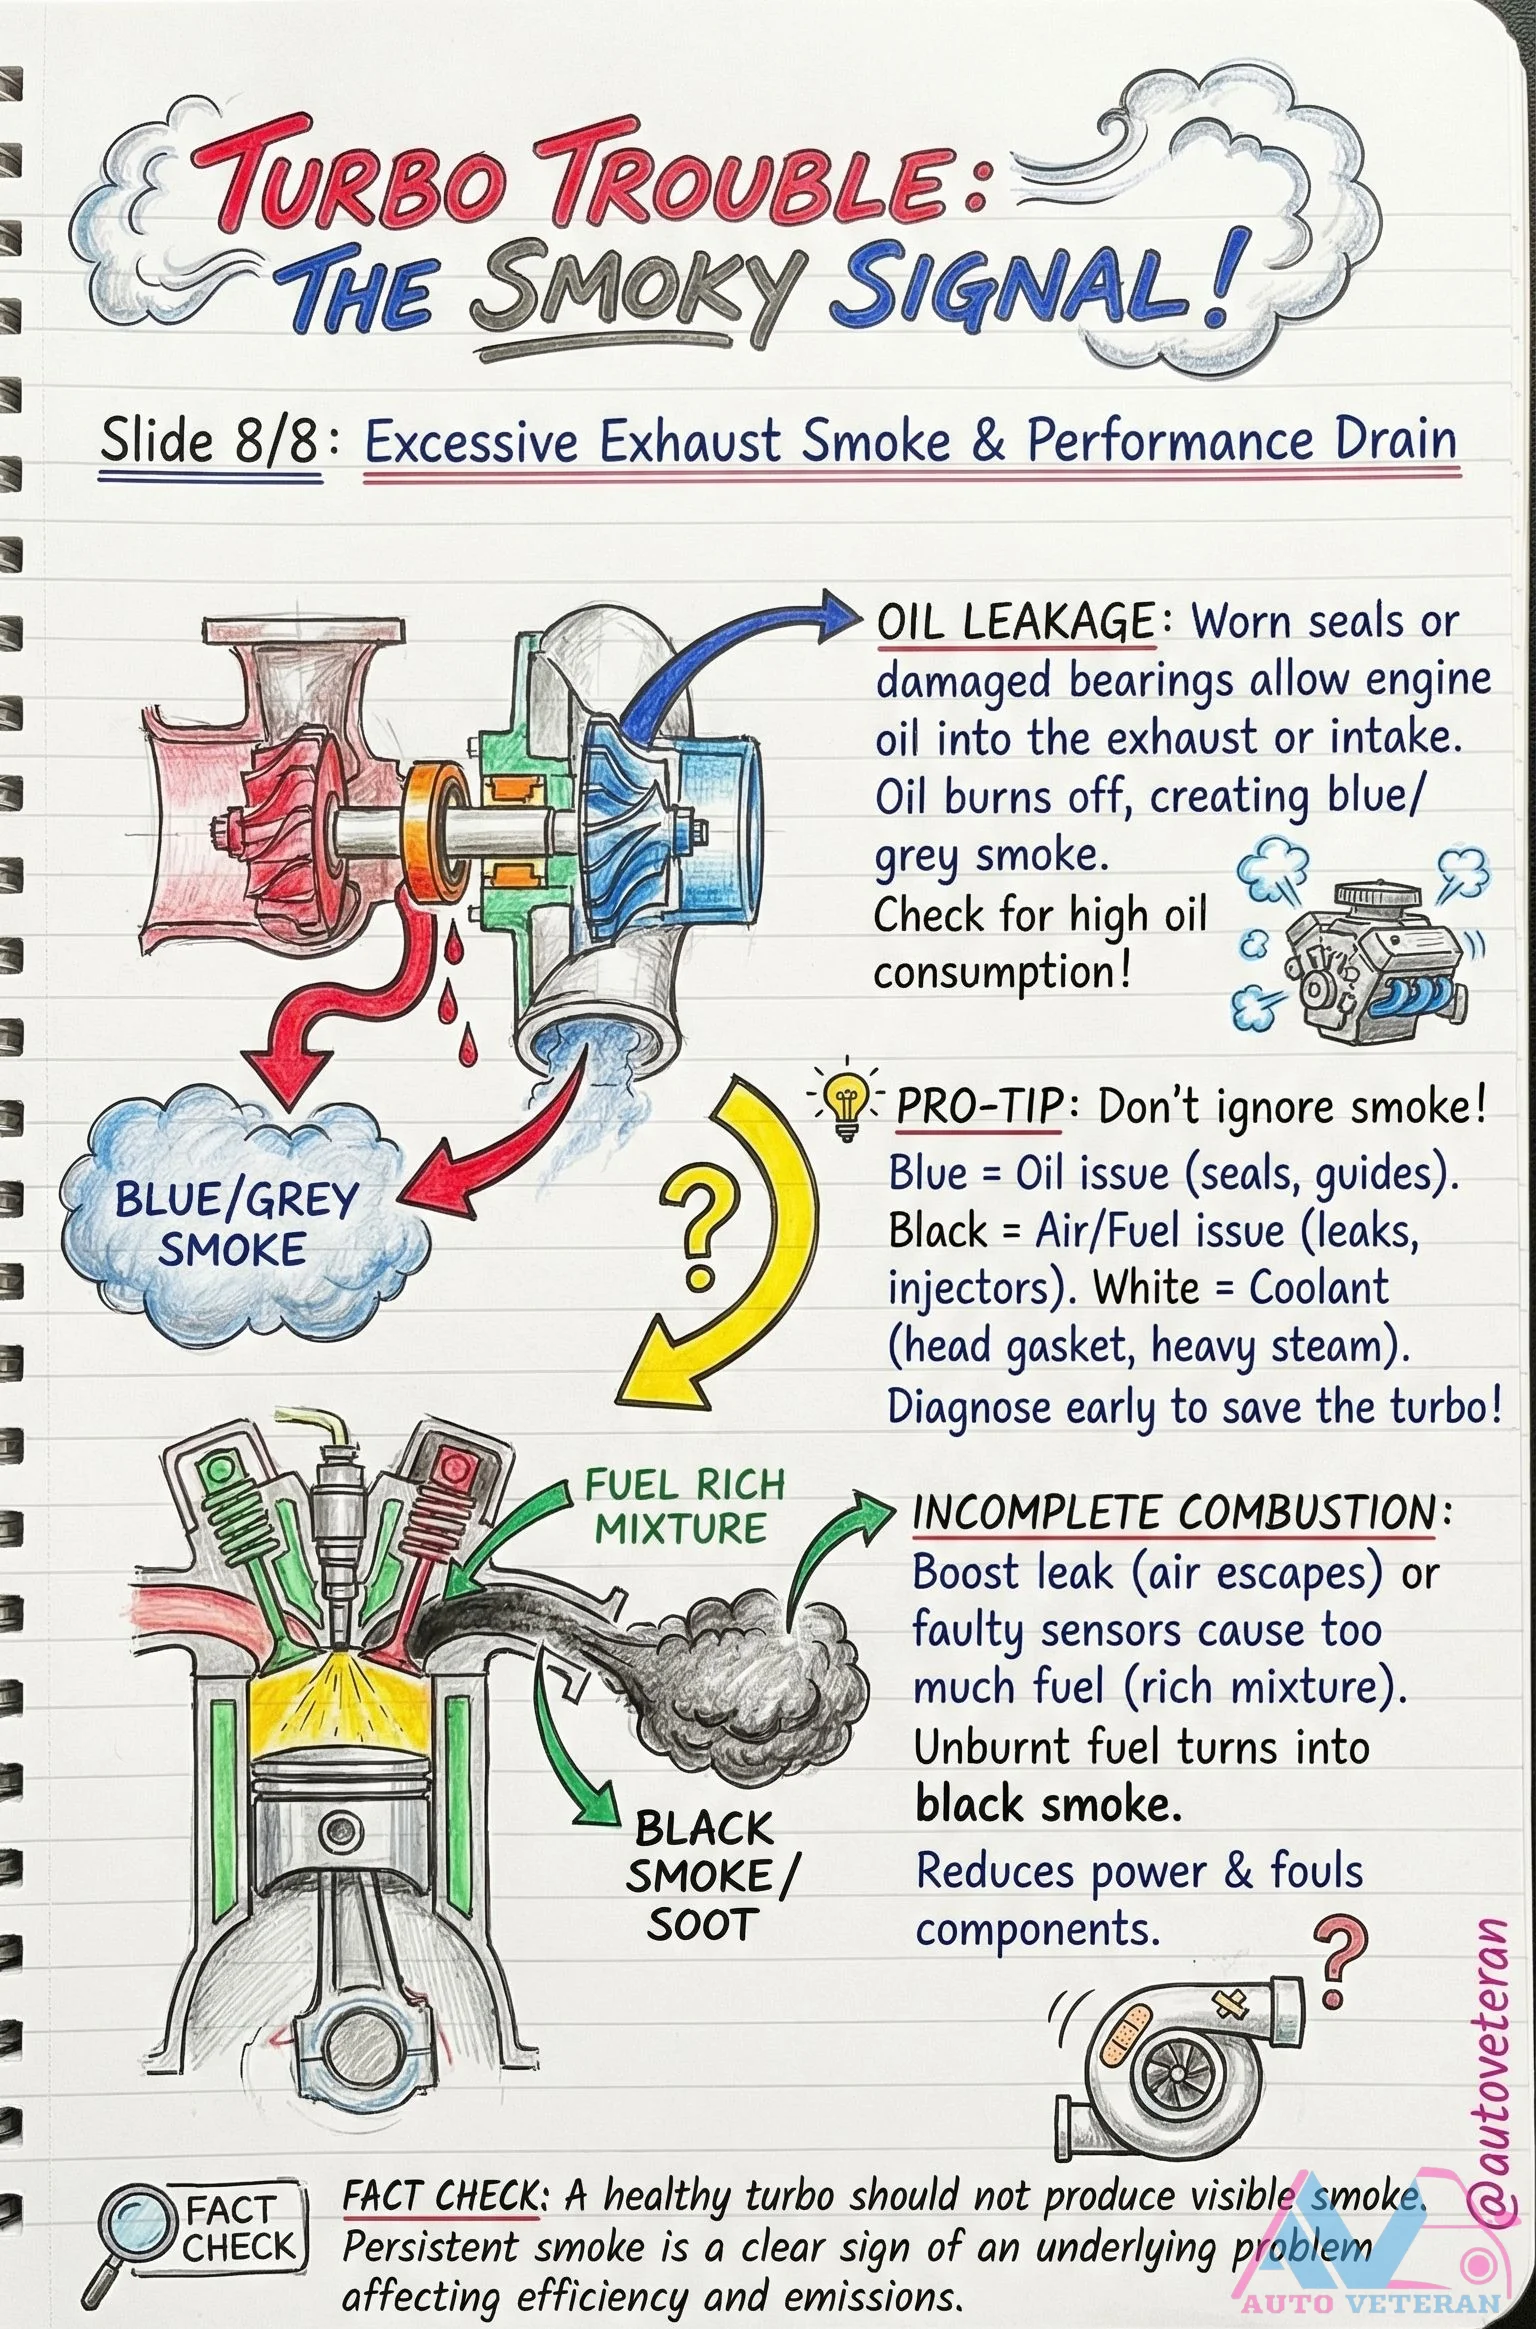 TURBO TROUBLE:
THE SMOKY SIGNAL!
Slide 8/8: Excessive Exhaust Smoke & Performance Drain
OIL LEAKAGE: Worn seals or
damaged bearings allow engine
oil into the exhaust or intake.
Oil burns off, creating blue/
grey smoke.
Check for high oil
consumption!
BLUE/GREY
SMOKE
?
PRO-TIP: Don't ignore smoke!
Blue = Oil issue (seals, guides).
Black = Air/Fuel issue (leaks,
injectors). White = Coolant
(head gasket, heavy steam).
Diagnose early to save the turbo!
FUEL RICH
MIXTURE
INCOMPLETE COMBUSTION:
Boost leak (air escapes) or
faulty sensors cause too
much fuel (rich mixture).
Unburnt fuel turns into
black smoke.
Reduces power & fouls
components.
BLACK
SMOKE/
SOOT
?
@autoveteran
FACT
CHECK
FACT CHECK: A healthy turbo should not produce visible smoke.
Persistent smoke is a clear sign of an underlying problem
affecting efficiency and emissions.
AV
AUTO VETERAN